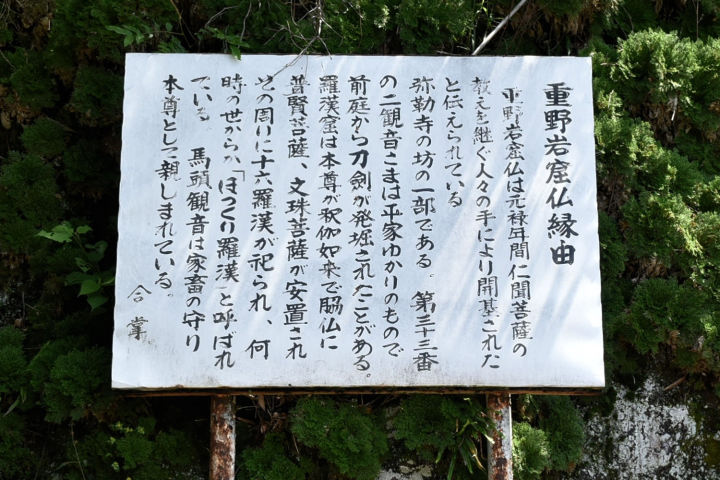 重野岩窟仏縁由
重野岩窟仏は元禄年間仁聞菩薩の
教えを継ぐ人々の手により開基された
と伝えられている
弥勒寺の坊の一部である。第三十三番
の二観音さまは平家ゆかりのもので
前庭から刀剣が発掘されたことがある。
羅漢窟は本尊が釈伽如来で脇仏に
普賢菩薩、文珠菩薩が安置され
その周りに十六羅漢が祀られ、何
時の世からか「ほっくり羅漢」と呼ばれ
ている。馬頭観音は家畜の守り
本尊として親しまれている。
合掌